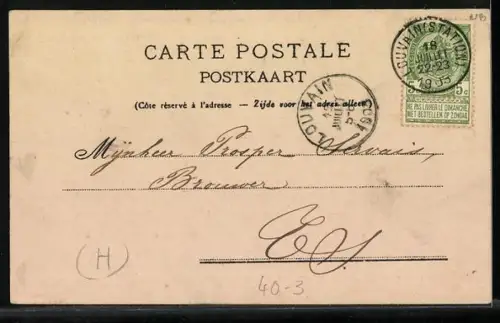 CARTE POSTALE
POSTKAART
(Côte réservé à l'adresse – Zijde voor het adres alleen)
LOUVAIN (STATION)
18
JUILLET
22-23
5c 5c
NE PAS LIVRER LE DIMANCHE
NIET BESTELLEN OP ZONDAG
LOUVAIN
JUILLET
Mijnheer Prosper Servais
Brouwer
E/S
(H)
40-3